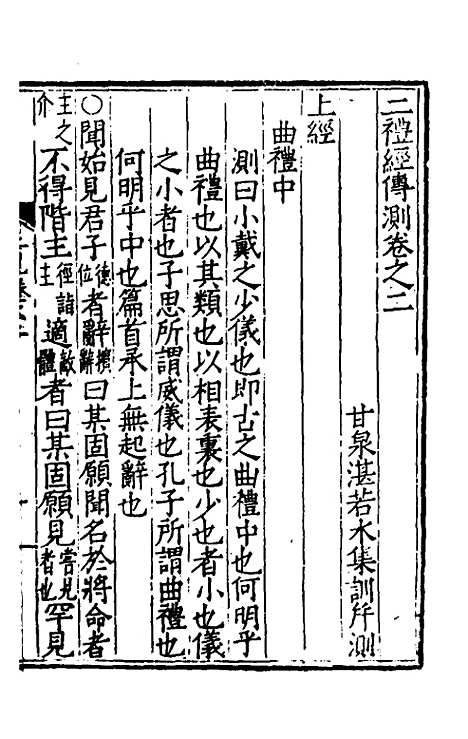 二禮經傳測卷之二
甘泉湛若水集訓并測
上經
曲禮中
測曰小戴之少儀也即古之曲禮中也何明乎
曲禮也以其類也以相表裏也少也者小也儀
之小者也子思所謂威儀也孔子所謂曲禮也
何明乎中也篇首承上無起辭也
○聞始見君子德位者辭辭擯辭曰某固願聞名於將命者
主之介不得階主徑詣主適敵體者曰某固願見嘗見者也罕見